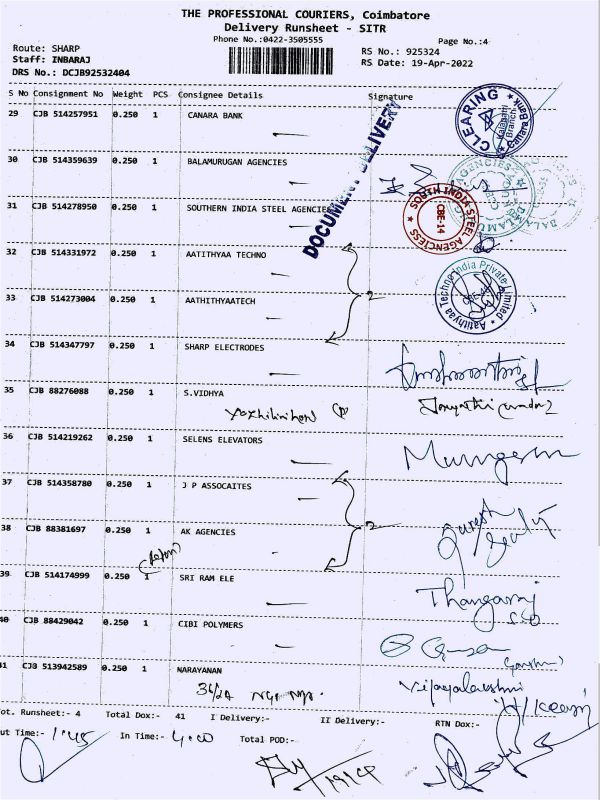 THE PROFESSIONAL COURIERS, Coimbatore
Delivery Runsheet - SITR
Phone No.:0422-3505555
Page No.:4
Route: SHARP
RS No.: 925324
Staff: INBARAJ
RS Date: 19-Apr-2022
DRS No.: DCJB92532404
S No Consignment No Weight PCS Consignee Details Signature
29 CJB 514257951 0.250 1 CANARA BANK
CLEARING
Canara Bank
Branch
DOCUMENT DELIVERY
30 CJB 514359639 0.250 1 BALAMURUGAN AGENCIES
31 CJB 514278950 0.250 1 SOUTHERN INDIA STEEL AGENCIES
SOUTH INDIA STEEL AGENCIESS
CBE-14
32 CJB 514331972 0.250 1 AATITHYAA TECHNO
2
Aatithyaa Techno India Private Limited
33 CJB 514273004 0.250 1 AATHITHYAATECH
34 CJB 514347797 0.250 1 SHARP ELECTRODES
35 CJB 88276088 0.250 1 S.VIDHYA
36 CJB 514219262 0.250 1 SELENS ELEVATORS
37 CJB 514358780 0.250 1 J P ASSOCAITES
2
Suresh
38 CJB 88381697 0.250 1 AK AGENCIES
39 CJB 514174999 0.250 1 SRI RAM ELE
Thangaraj
40 CJB 88429042 0.250 1 CIBI POLYMERS
41 CJB 513942589 0.250 1 NARAYANAN
Vijayalakshmi
Tot. Runsheet:- 4 Total Dox:- 41 I Delivery:- II Delivery:- RTN Dox:-
Out Time:- 1:45 In Time:- 4:00 Total POD:-